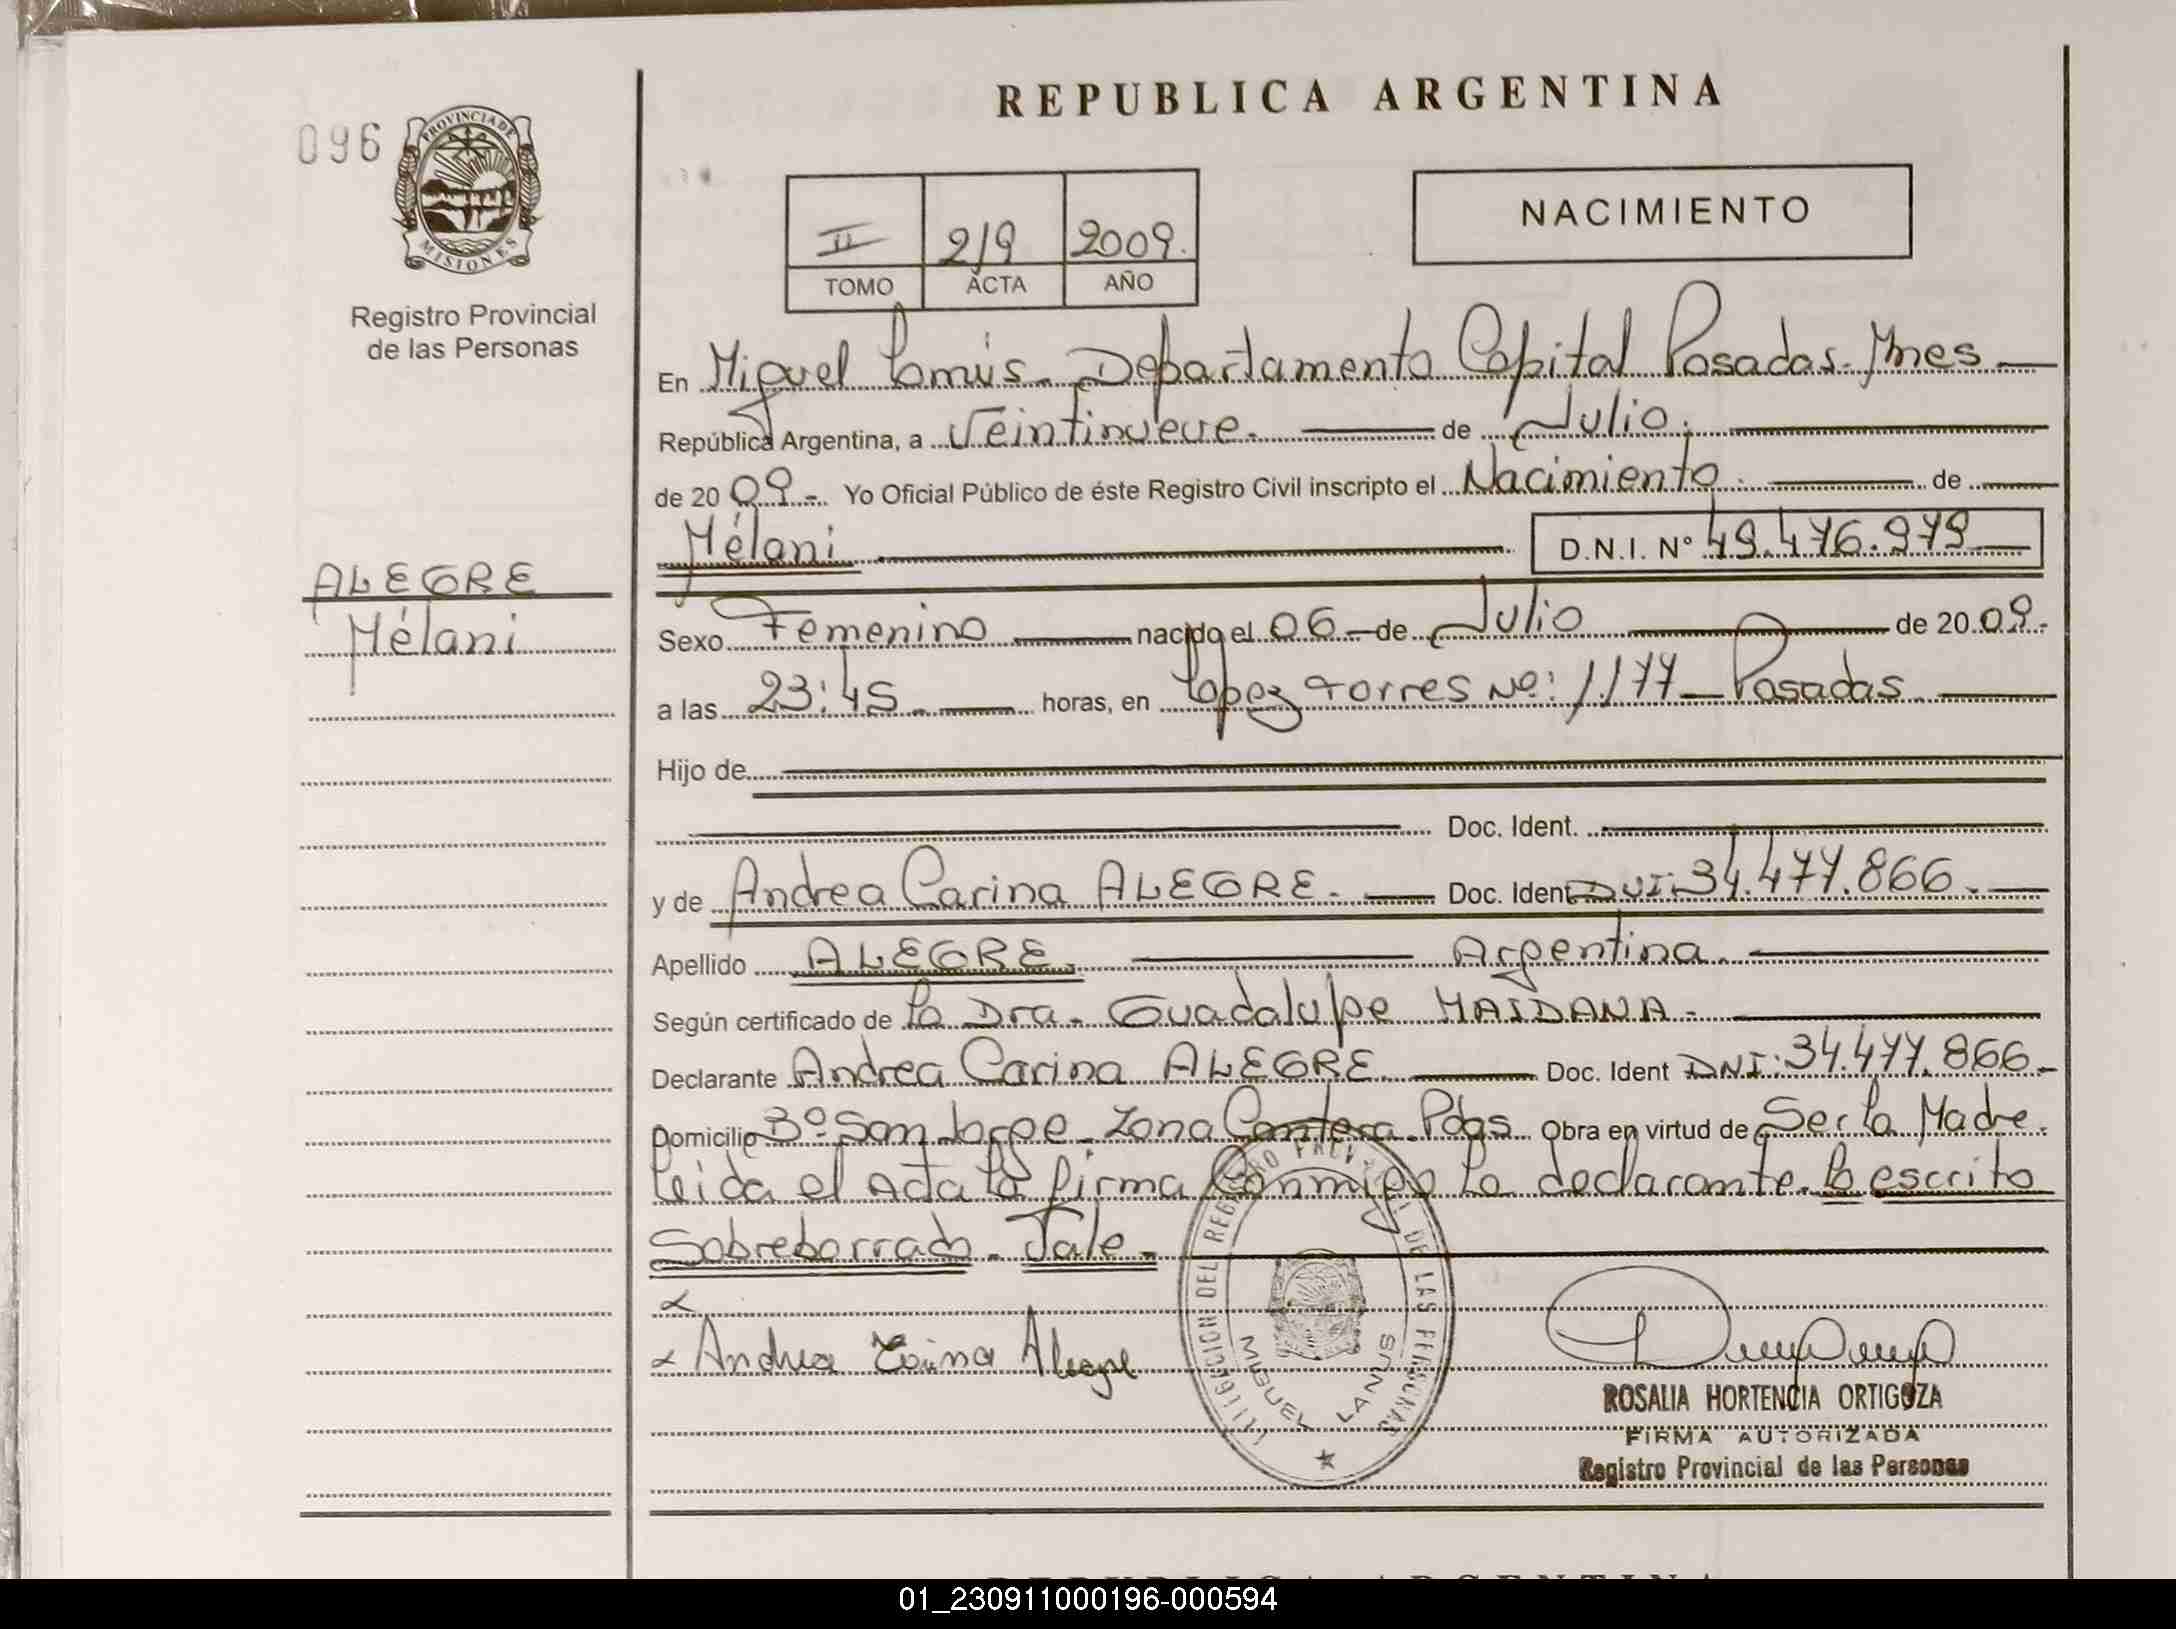 REPUBLICA ARGENTINA
096
PROVINCIA DE
MISIONES
Registro Provincial
de las Personas
II 219 2009.
TOMO ACTA AÑO
NACIMIENTO
En Miguel Lanús. Departamento Capital Posadas. Mnes
República Argentina, a Veintinueve. de Julio.
de 2009.- Yo Oficial Público de éste Registro Civil inscripto el Nacimiento. de
Mélani D.N.I. Nº 49.476.979
ALEGRE
Mélani
Sexo Femenino nacido el 06 de Julio de 2009.-
a las 23:45 horas, en Lopez Torres Nº: 1.177 Posadas
Hijo de
Doc. Ident.
y de Andrea Carina ALEGRE. Doc. Ident DNI: 34.477.866.
Apellido ALEGRE. Argentina.
Según certificado de La Dra. Guadalupe MAIDANA.
Declarante Andrea Carina ALEGRE Doc. Ident DNI: 34.477.866.-
Domicilio Bº San Jorge. Zona Cantera. Pdas Obra en virtud de Ser la Madre.
Leida el Acta la firma Conmigo la declarante. Lo escrito
Sobreborrado. Vale.
Andrea Carina Alegre
DEL REGISTRO PROVINCIAL DE LAS PERSONAS
MIGUEL LANUS
ROSALIA HORTENCIA ORTIGOZA
FIRMA AUTORIZADA
Registro Provincial de las Personas
REPUBLICA ARGENTINA
01_230911000196-000594